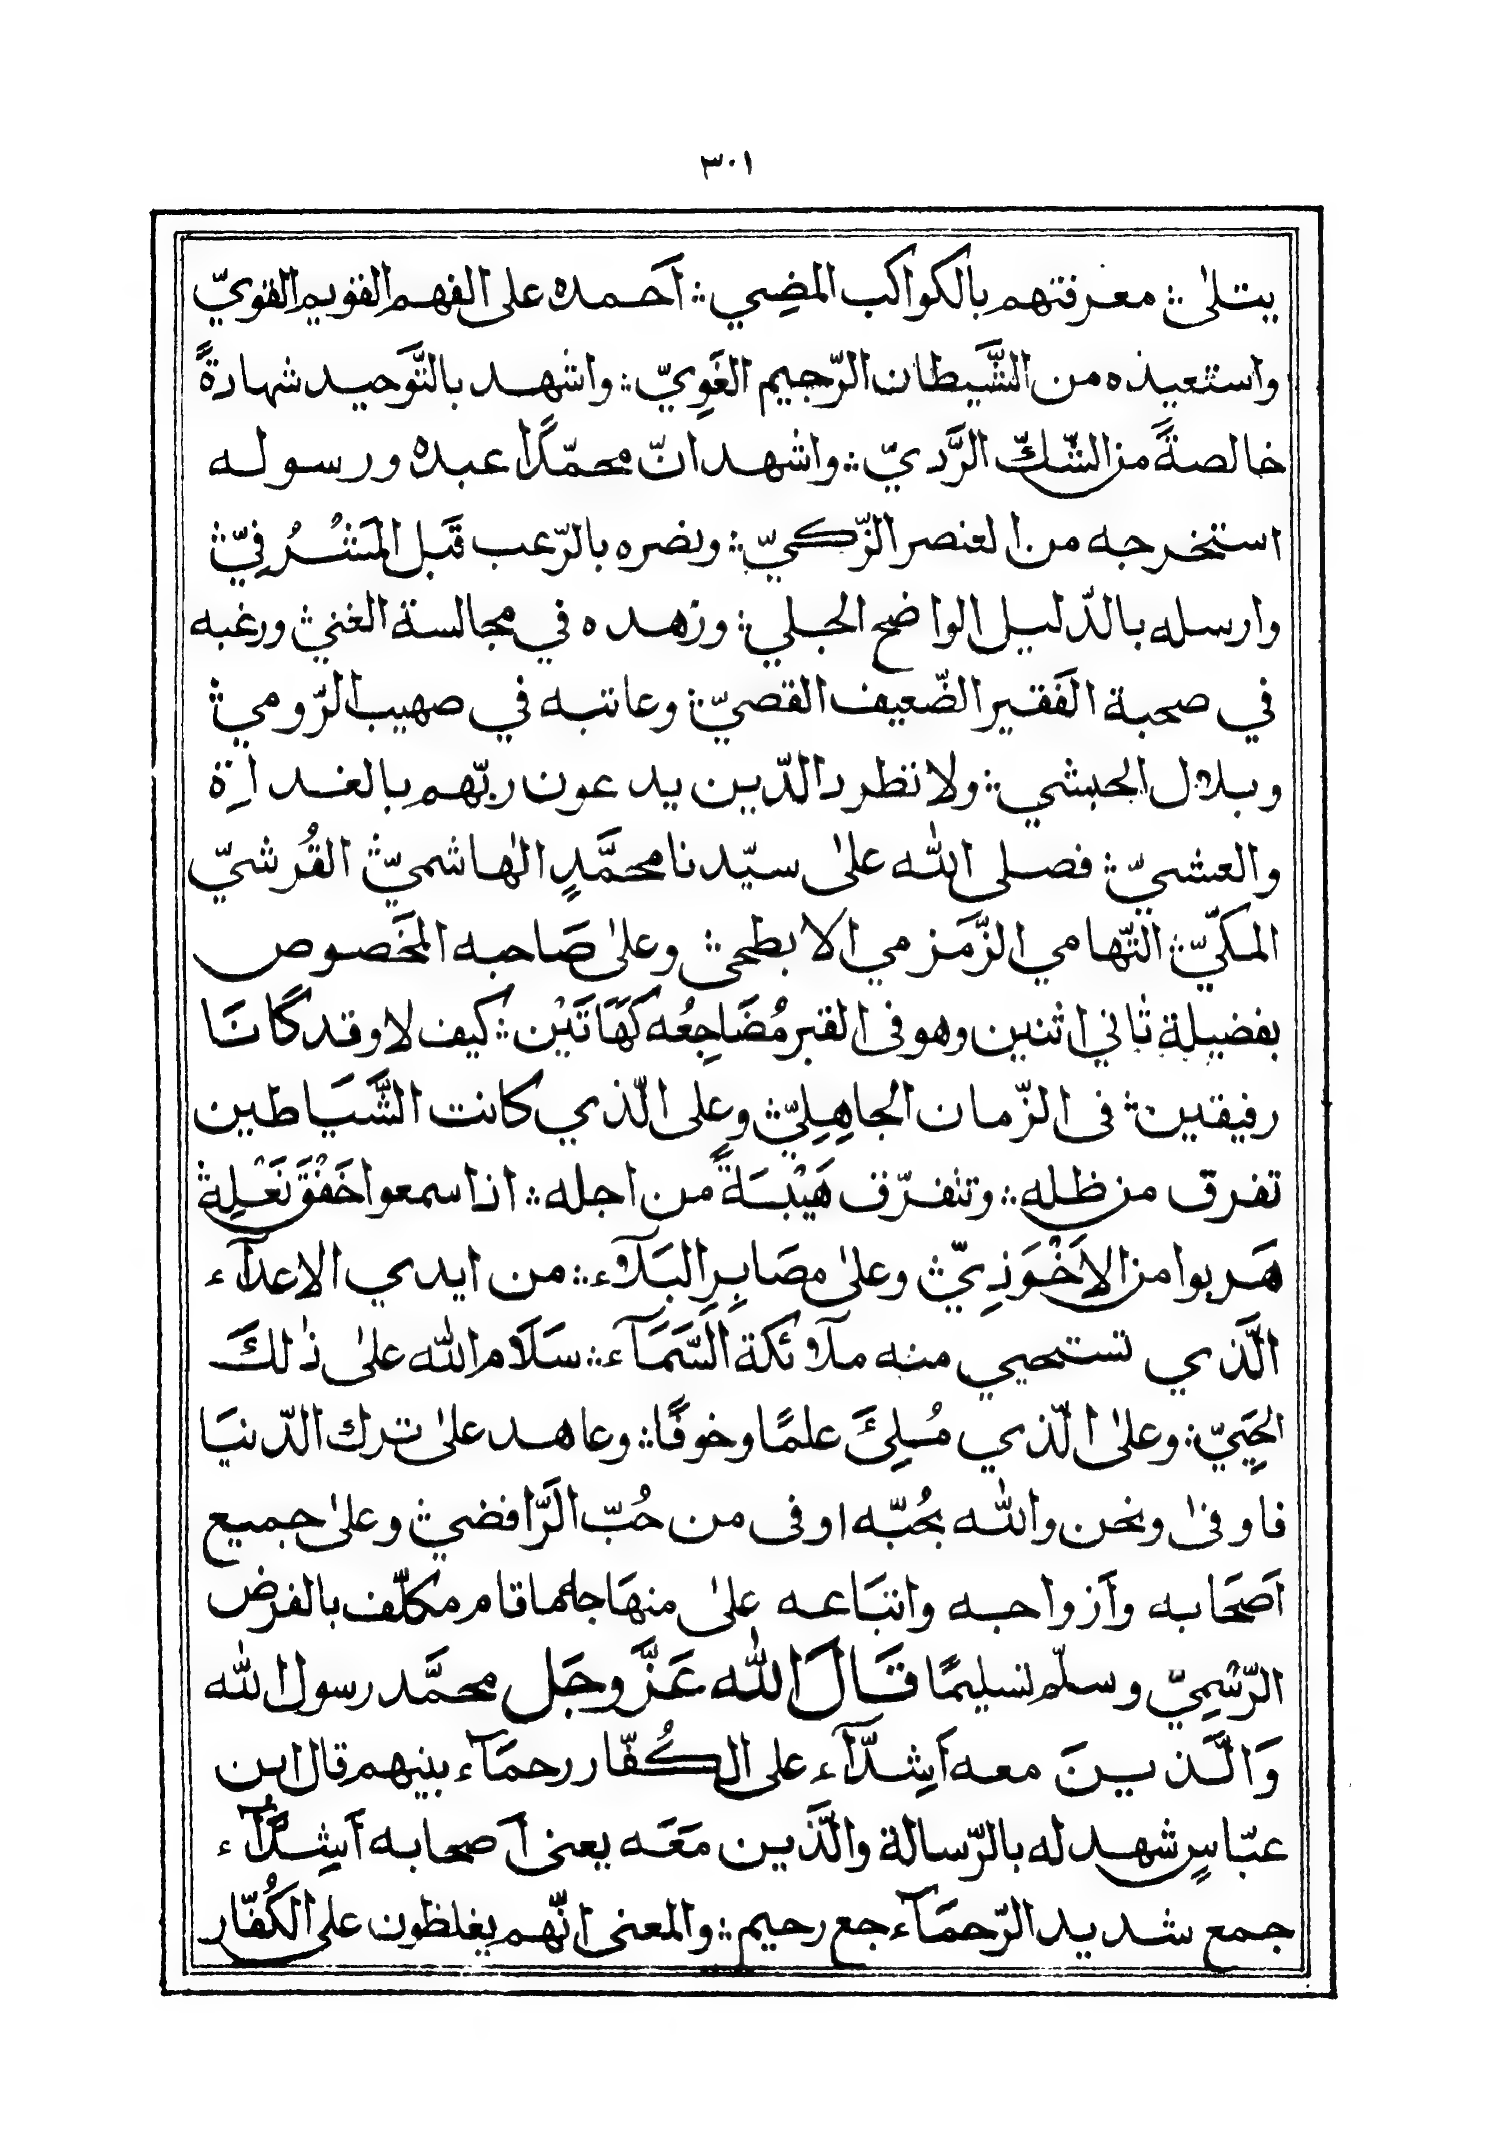 ٣٠١
يتلىٰ ؞ معرفتهم بالكواكب المضِي ؞ اَحمده على الفهم القويم القويّ
واستعيذه من الشَّيطان الرّجيم الغَوِيّ ؞ واشهد بالتَّوحيد شهادةً
خالصةً من الشّكِّ الرَّديّ ؞ واشهد انّ محمّدًا عبده ورسوله
استخرجه من العنصر الزّكيّ ؞ ونصره بالرّعب قَبل المَشْرُفِيّ ؞
وارسله بالدّليل الواضح الجلي ؞ وزهده في مجالسة الغني ؞ ورغبه
في صحبة الفَقير الضّعيف القصيّ ؞ وعاتبه في صهيب الرّومي ؞
وبلال الحبشي ؞ ولا تطرد الذّين يدعون ربّهم بالغداة
والعشيّ ؞ فصلى الله علىٰ سيّدنا محمَّدٍ الهاشميّ ؞ القُرشيّ
المكيّ ؞ التّهامي الزَّمَزمي الابطحي ؞ وعلىٰ صَاحبه المَخصوص
بفضيلة ثاني اثنين وهو فى القبر مُضَاجِعُه كَهَاتَيْن ؞ كيف لا وقد كَانَا
رفيقين ؞ فى الزّمان الجاهِلِيّ ؞ وعلى الّذي كانت الشَّيَاطين
تفرق من ظله ؞ وتتفرّق هَيْبَةً من اجله ؞ اذا سمعوا خَفْقَ نَعْلِهِ
هَربوا من الاَخْوَذِيّ ؞ وعلىٰ مصَابِرِ البَلَآء ؞ من ايدي الاعدآء
الَّذي تستحيي منه ملآئكة السَّمَآء ؞ سَلَام الله علىٰ ذٰلكَ
الحَيِيّ ؞ وعلىٰ الّذي مُلِئَ علمًا وخوفًا ؞ وعاهد علىٰ ترك الدّنيَا
فاوفىٰ ونحن والله بحُبّه اوفى من حُبّ الرَّافضي ؞ وعلىٰ جميع
اَصحَابه وَاَزواجه واتبَاعه علىٰ منهَاجه ما قام مكلّف بالفرض
الرّسْمِيّ وسلّم تسليمًا قَالَ الله عَزَّ وجَل محمَّد رسول الله
وَالَّذينَ معه اَشِدّآء على الكُفّار رحمَآء بينهم قال ابن
عبّاسٍ شهد له بالرّسالة والَّذين مَعَه يعنى اَصحابه اَشِدَّآء
جمع شديد الرّحمَآء جمع رحيم ؞ والمعنى انّهم يغلظون على الكُفّار